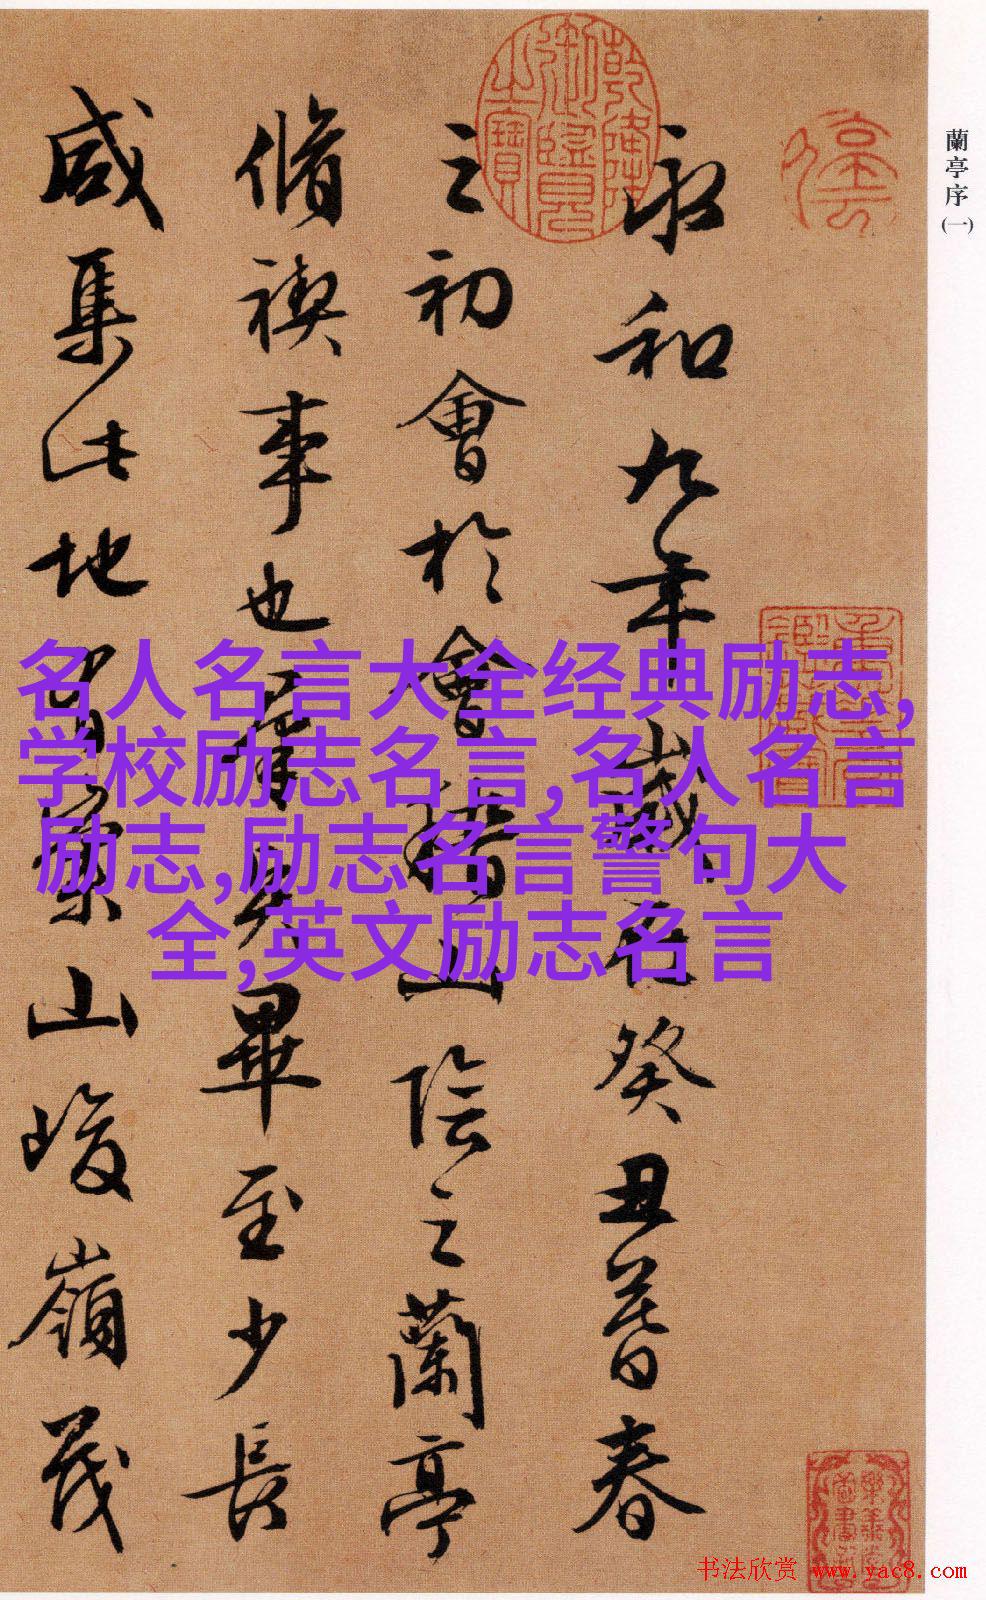 蘭亭序(一)
乾隆御覽之寶
永和九年歲在癸丑暮春
之初會於會稽山陰之蘭亭
脩禊事也羣賢畢至少長
咸集此地有崇山峻嶺茂
名人名言大全经典励志,
学校励志名言,名人名言
励志,励志名言警句大
全,英文励志名言
书法欣赏 www.yac8.com